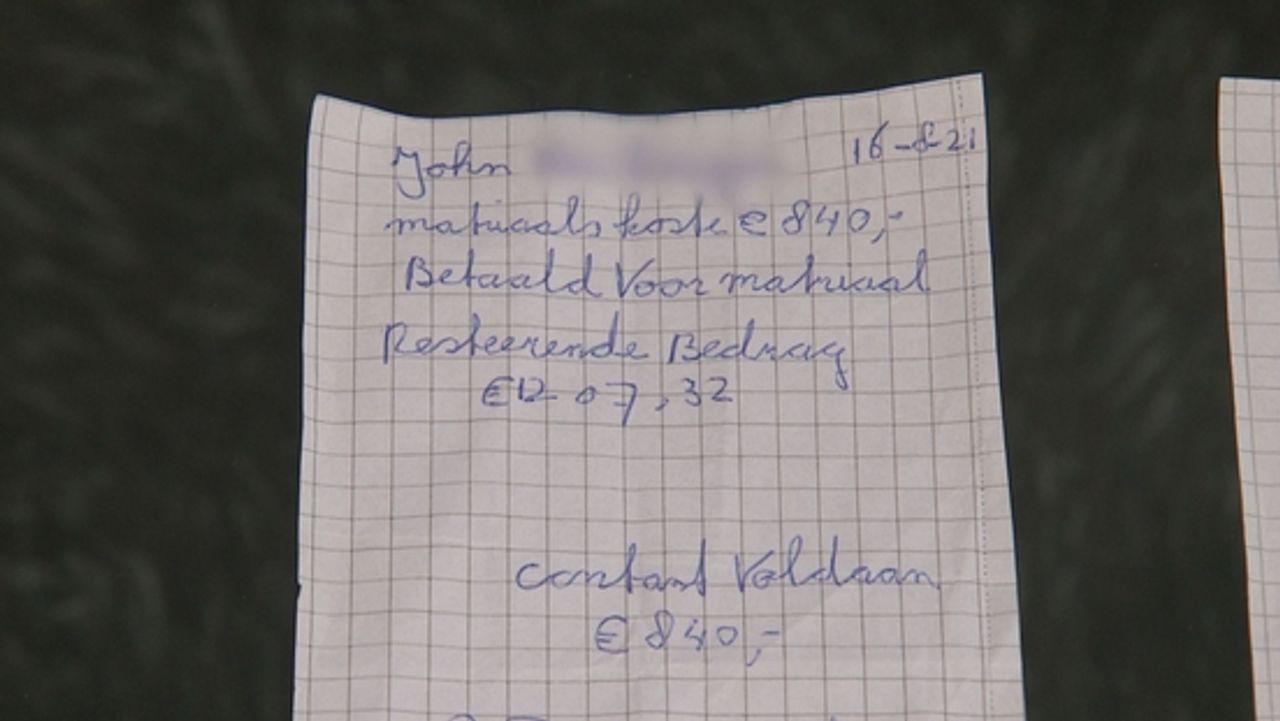 John 16-8-21
matriaals koste € 840,-
Betaald Voor matriaal
Resteerende Bedrag
€ 1207,32
contant Voldaan
€ 840,-